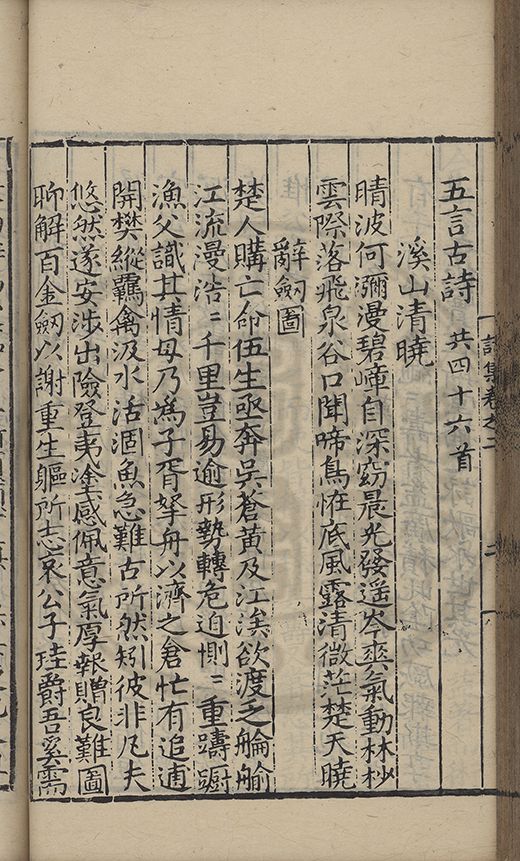 詩集卷之二
二
五言古詩 共四十六首
溪山清曉
晴波何瀰漫碧嶂自深窈晨光發遥岑爽氣動林杪
雲際落飛泉谷口聞啼鳥恠底風露清微茫楚天曉
辭劒圖
楚人購亡命伍生亟奔吳蒼黃及江涘欲渡之
江流漫浩〻千里豈易逾形勢轉危迫惻〻重躊躕
漁父識其情毋乃爲子胥拏舟以濟之倉忙有追逋
開樊縱羈禽汲水活涸魚急難古所然矧彼非凡夫
悠然遂安涉出險登夷塗感佩意氣厚報贈良難圖
聊解百金劒以謝重生軀所志哀公子珪爵吾奚需